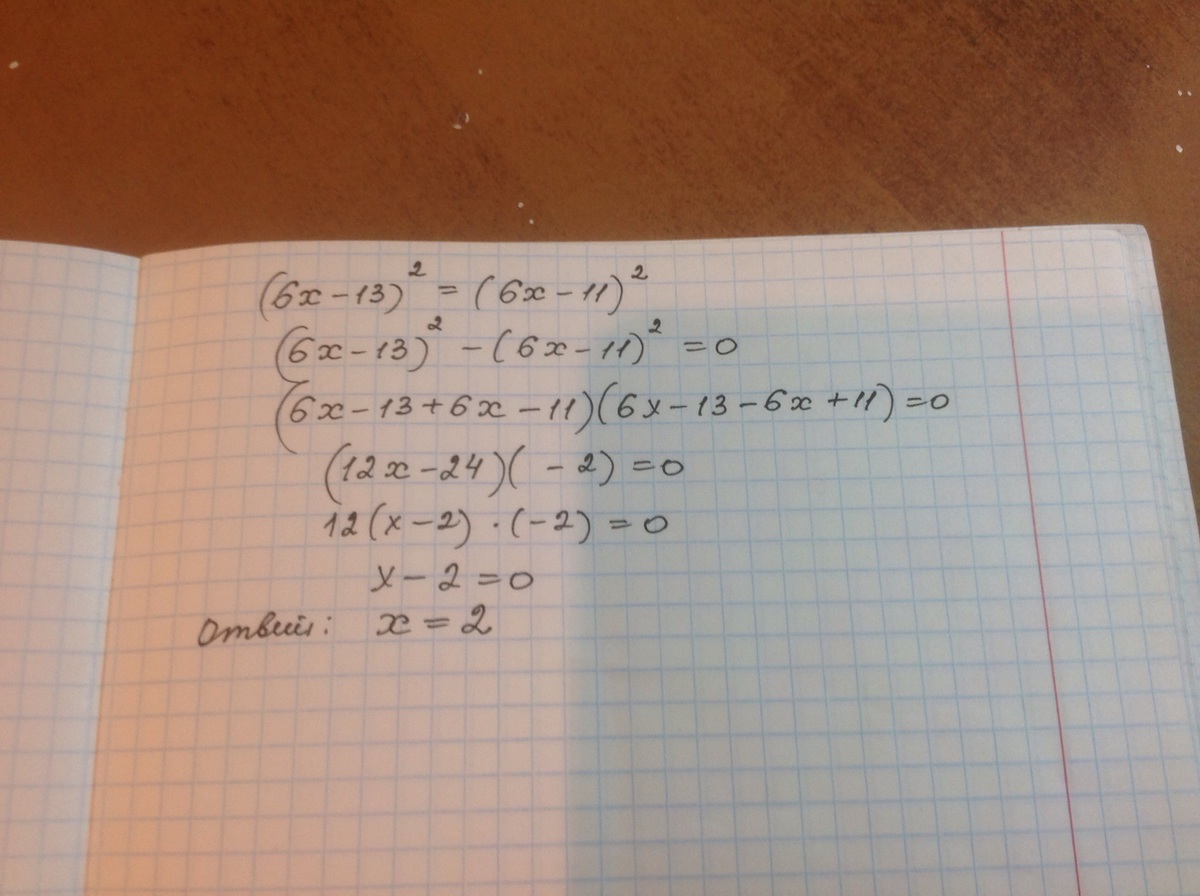 (6x-13)² = (6x-11)²
(6x-13)² -(6x-11)² =0
(6x-13+6x-11)(6x-13-6x+11)=0
(12x-24)( -2) =0
12(x-2) · (-2) =0
x-2=0
Ответ: x=2